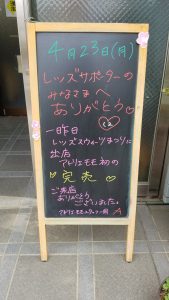 4月23日(月)
レッズサポーターの
みなさまへ
ありがとう♡
一昨日
レッズスウィーツまつりに
出店
アトリエモモ初の
♡完売♡
ご来店
ありがとう
ございました。
アトリエモモ